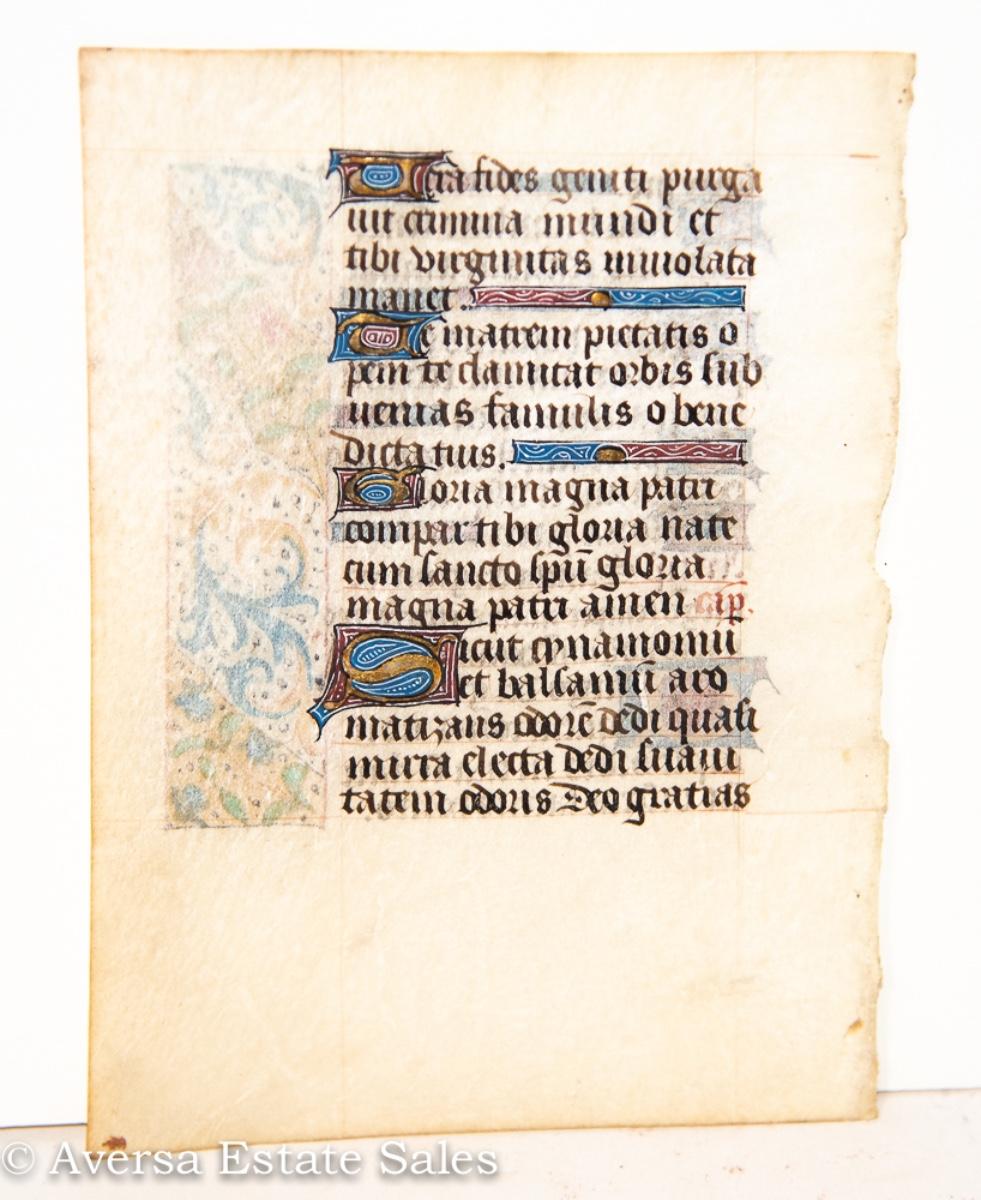 Vera fides geniti purga
uit crimina mundi et
tibi virginitas inuiolata
manet.
Te matrem pietatis o
pem te clamitat orbis sub
uenias famulis o bene
dicta tuis.
Gloria magna patri
compar tibi gloria nate
cum sancto spũ gloria
magna patri amen cap.
Sicut cynamomũ
et balsamũ aro
matizans odorẽ dedi quasi
mirra electa dedi suaui
tatem odoris Deo gratias
© Aversa Estate Sales